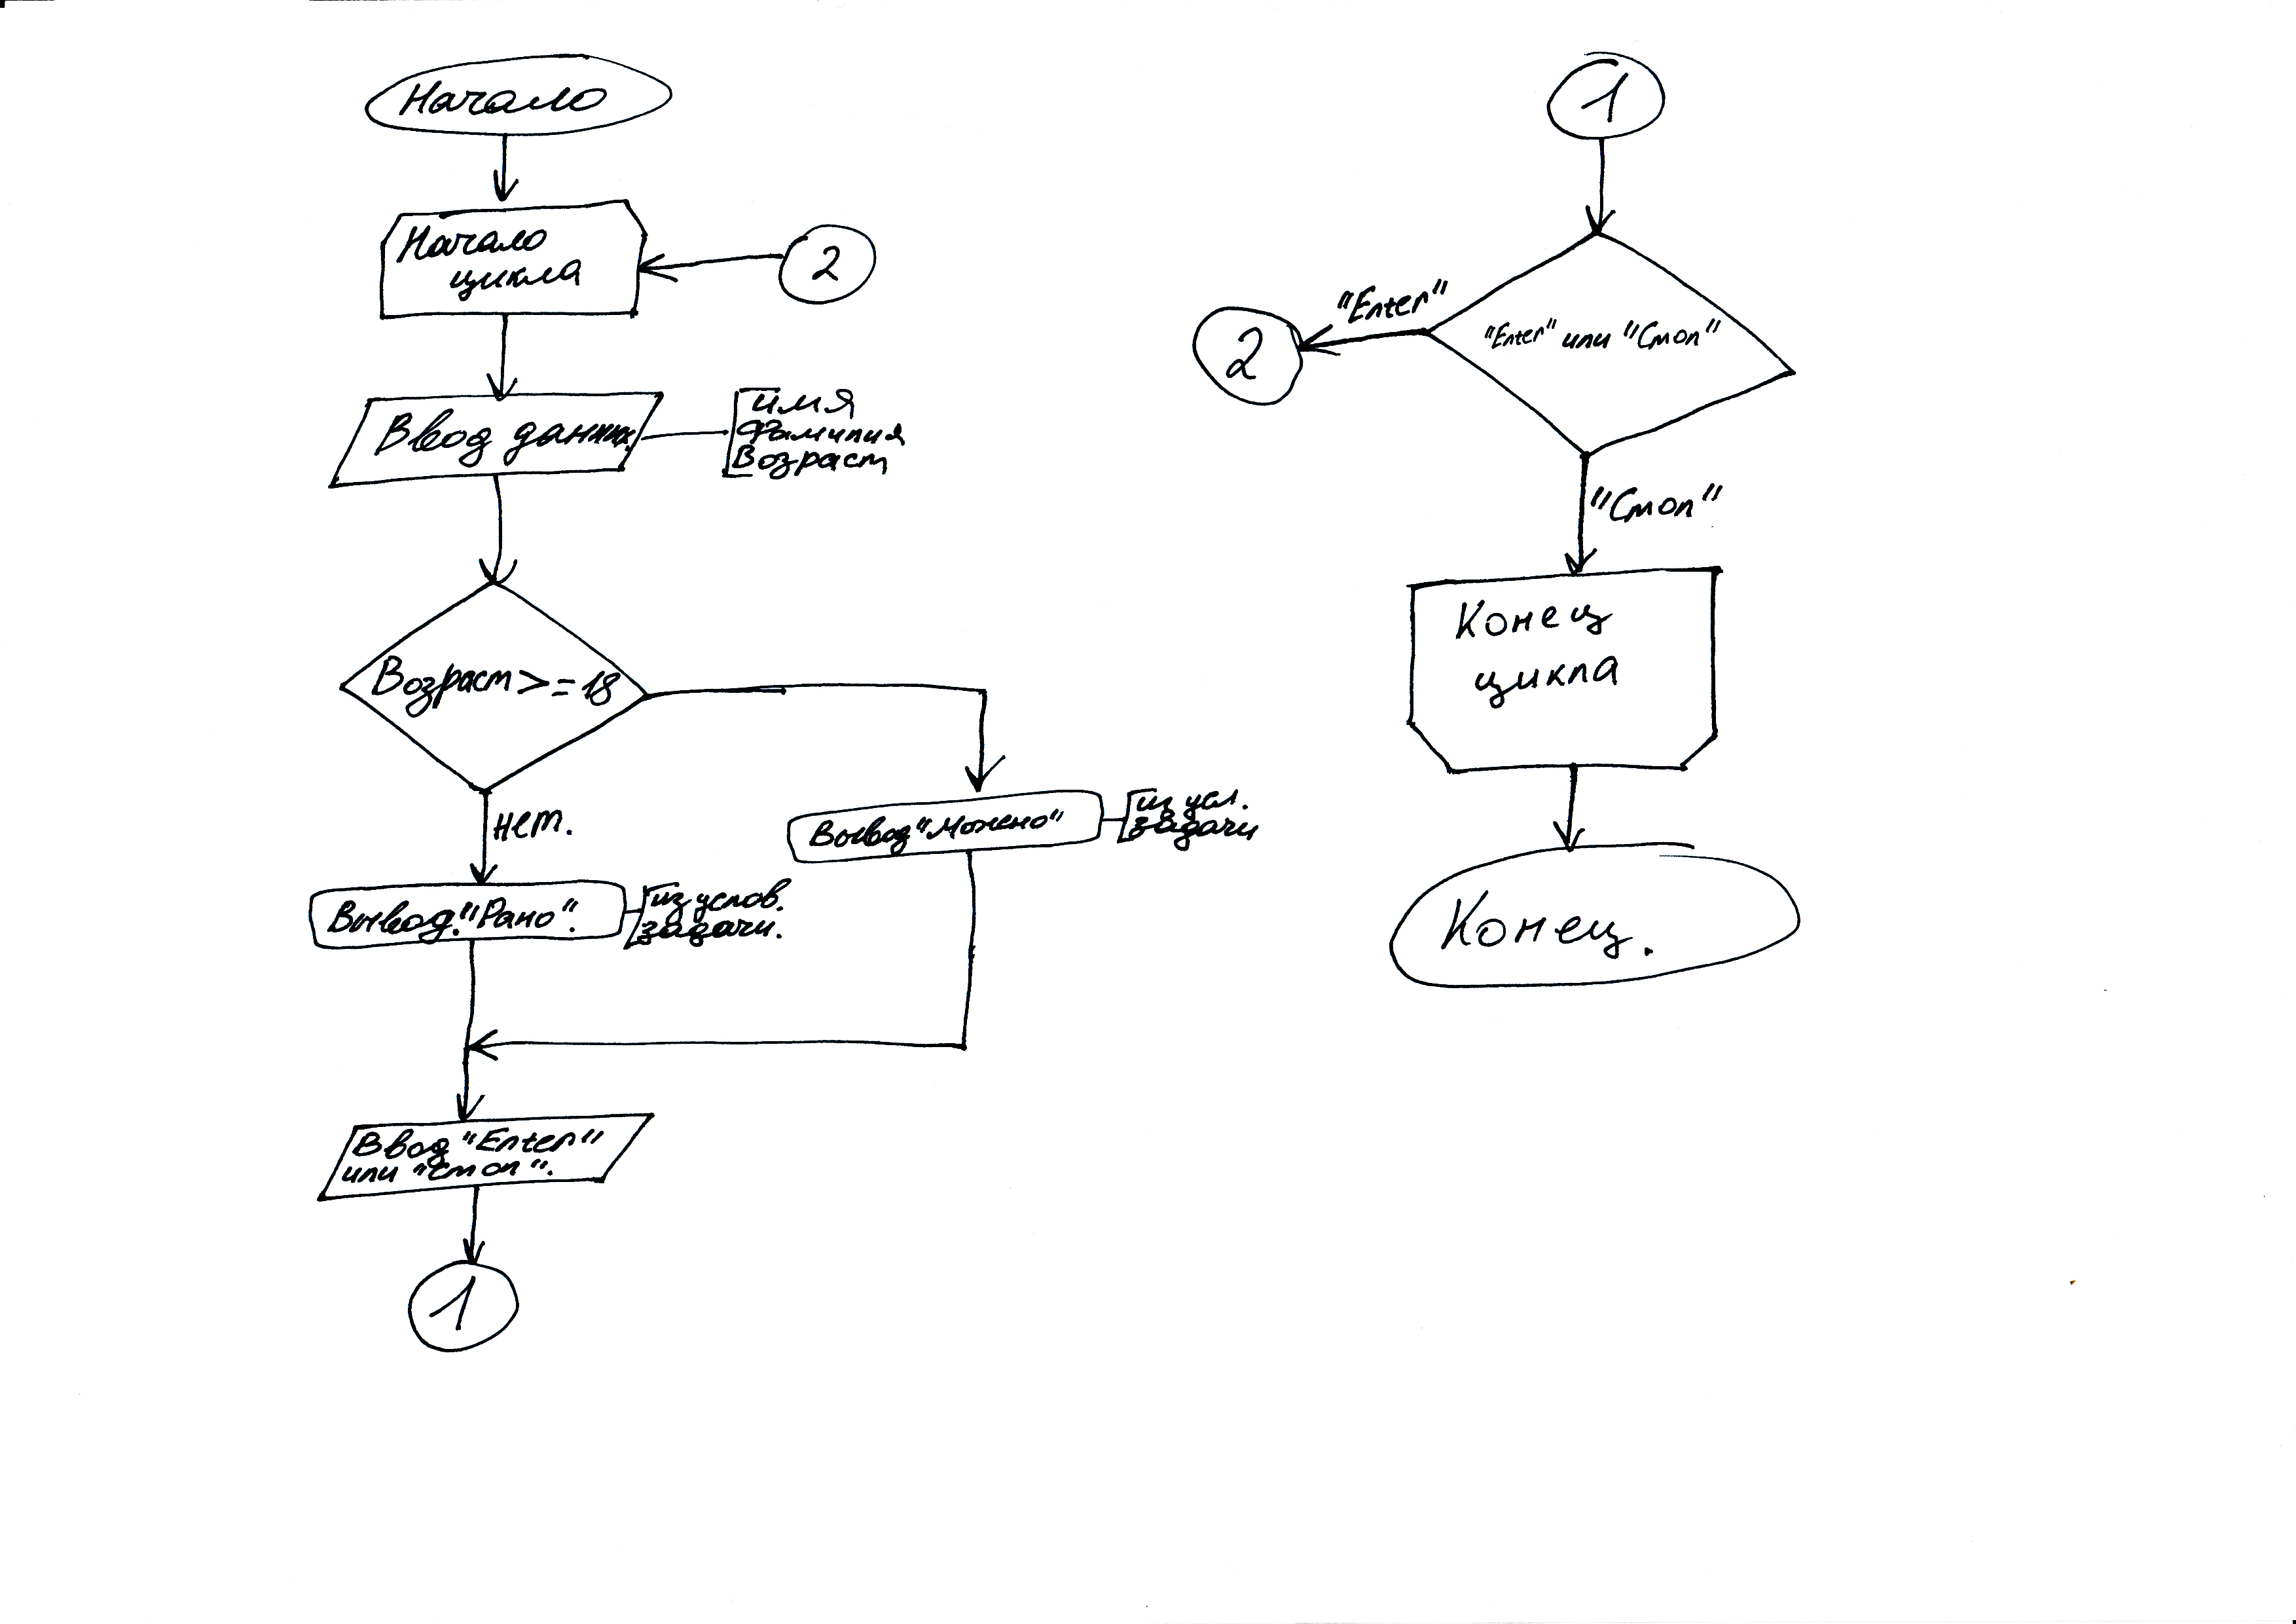 Начало
Начало
цикла
2
Ввод данных
имя
Фамилия
Возраст
Возраст >= 18
нет.
Вывод "Можно"
из усл.
задачи
Вывод "Рано".
из услов.
задачи.
Ввод "Enter"
или "Стоп".
1
1
"Enter" или "Стоп"
"Enter"
2
"Стоп"
Конец
цикла
Конец.